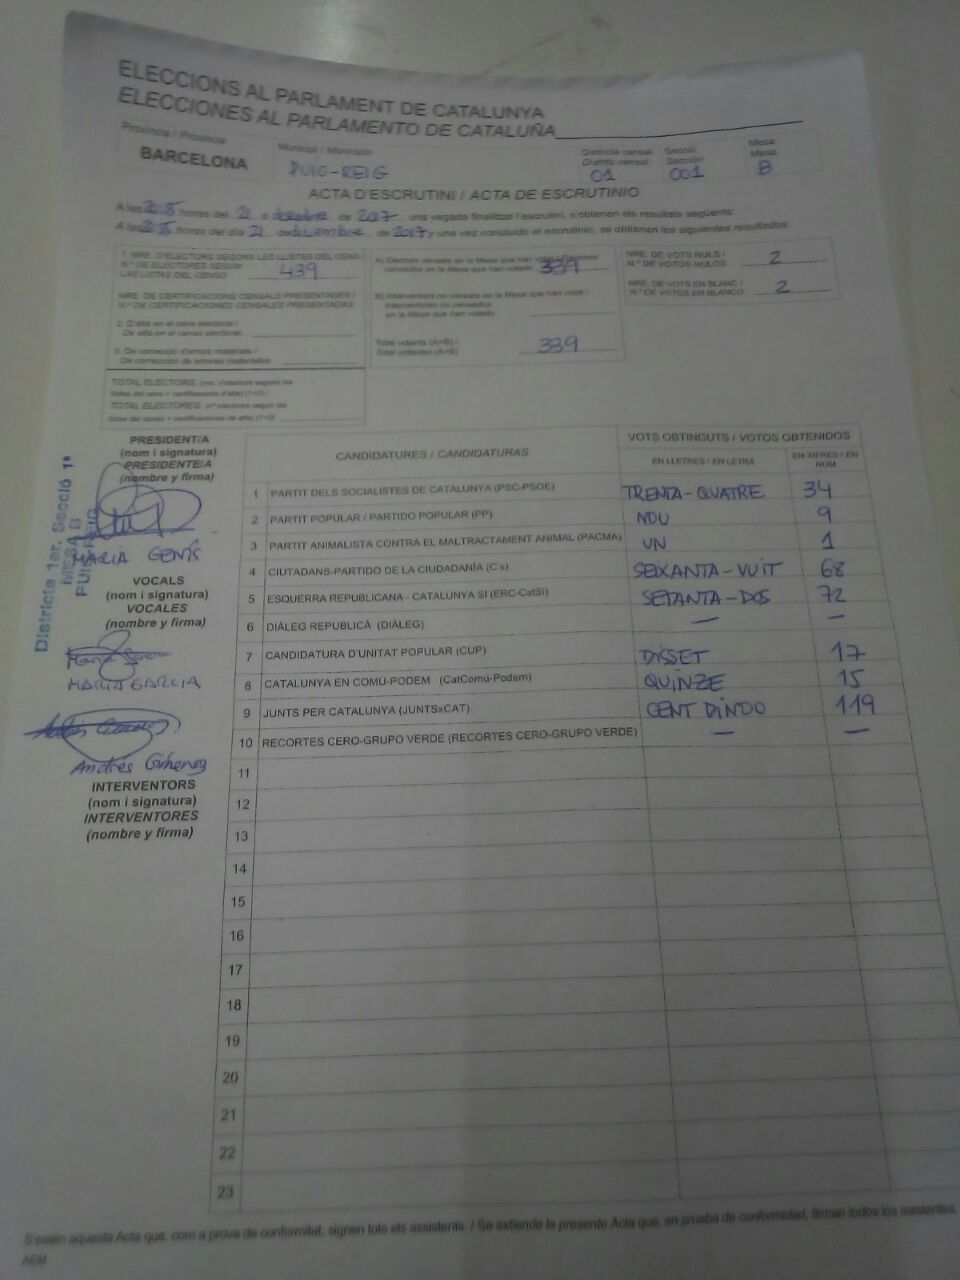 ELECCIONS AL PARLAMENT DE CATALUNYA
ELECCIONES AL PARLAMENTO DE CATALUÑA
Província / Provincia
BARCELONA
Municipi / Municipio
PUIG-REIG
Districte censal
Distrito censal
01
Secció
Sección
001
Mesa
Mesa
B
ACTA D'ESCRUTINI / ACTA DE ESCRUTINIO
A les 20:55 hores del 21 d desembre de 2017, una vegada finalitzat l'escrutini, s'obtenen els resultats següents:
A las 20:55 horas del día 21 de diciembre de 2017 y una vez concluido el escrutinio, se obtienen los siguientes resultados:
1. NRE. D'ELECTORS SEGONS LES LLISTES DEL CENS /
N.º DE ELECTORES SEGÚN
LAS LISTAS DEL CENSO
439
NRE. DE CERTIFICACIONS CENSALS PRESENTADES /
N.º DE CERTIFICACIONES CENSALES PRESENTADAS
2. D'alta en el cens electoral /
De alta en el censo electoral:
3. De correcció d'errors materials /
De corrección de errores materiales:
TOTAL ELECTORS: (nre. d'electors segons les
llistes del cens + certificacions d'alta) (1+2) /
TOTAL ELECTORES: (nº electores según las
listas del censo + certificaciones de alta) (1+2)
A) Electors censats en la Mesa que han votat / Electores
censados en la Mesa que han votado
339
B) Interventors no censats en la Mesa que han votat /
Interventores no censados
en la Mesa que han votado
Total votants (A+B) /
Total votantes (A+B)
339
NRE. DE VOTS NULS /
N.º DE VOTOS NULOS
2
NRE. DE VOTS EN BLANC /
N.º DE VOTOS EN BLANCO
2
Districte 1er. Secció 1ª
MESA B
PUIG-REIG
PRESIDENT/A
(nom i signatura)
PRESIDENTE/A
(nombre y firma)
MARIA GENÍS
VOCALS
(nom i signatura)
VOCALES
(nombre y firma)
MARIA GARCIA
Andrés Giménez
INTERVENTORS
(nom i signatura)
INTERVENTORES
(nombre y firma)
CANDIDATURES / CANDIDATURAS
VOTS OBTINGUTS / VOTOS OBTENIDOS
EN LLETRES / EN LETRA
EN XIFRES / EN NÚM.
1 PARTIT DELS SOCIALISTES DE CATALUNYA (PSC-PSOE) TRENTA-QUATRE 34
2 PARTIT POPULAR / PARTIDO POPULAR (PP) NOU 9
3 PARTIT ANIMALISTA CONTRA EL MALTRACTAMENT ANIMAL (PACMA) UN 1
4 CIUTADANS-PARTIDO DE LA CIUDADANÍA (C's) SEIXANTA-VUIT 68
5 ESQUERRA REPUBLICANA - CATALUNYA SÍ (ERC-CatSí) SETANTA-DOS 72
6 DIÀLEG REPUBLICÀ (DIÀLEG) — —
7 CANDIDATURA D'UNITAT POPULAR (CUP) DISSET 17
8 CATALUNYA EN COMÚ-PODEM (CatComú-Podem) QUINZE 15
9 JUNTS PER CATALUNYA (JUNTSxCAT) CENT DINOU 119
10 RECORTES CERO-GRUPO VERDE (RECORTES CERO-GRUPO VERDE) — —
11
12
13
14
15
16
17
18
19
20
21
22
23
S'estén aquesta Acta que, com a prova de conformitat, signen tots els assistents. / Se extiende la presente Acta que, en prueba de conformidad, firman todos los asistentes.
AEM